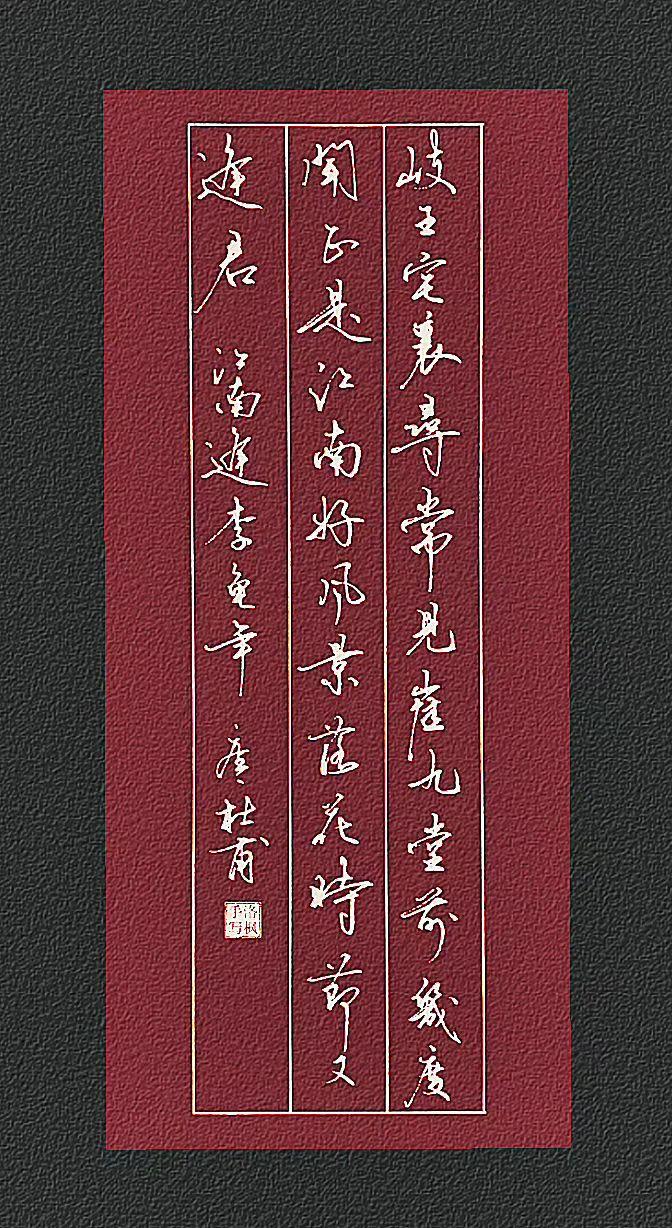 岐王宅裏尋常見崔九堂前幾度
聞正是江南好風景落花時節又
逢君 江南逢李龜年 唐 杜甫
洛枫
手写